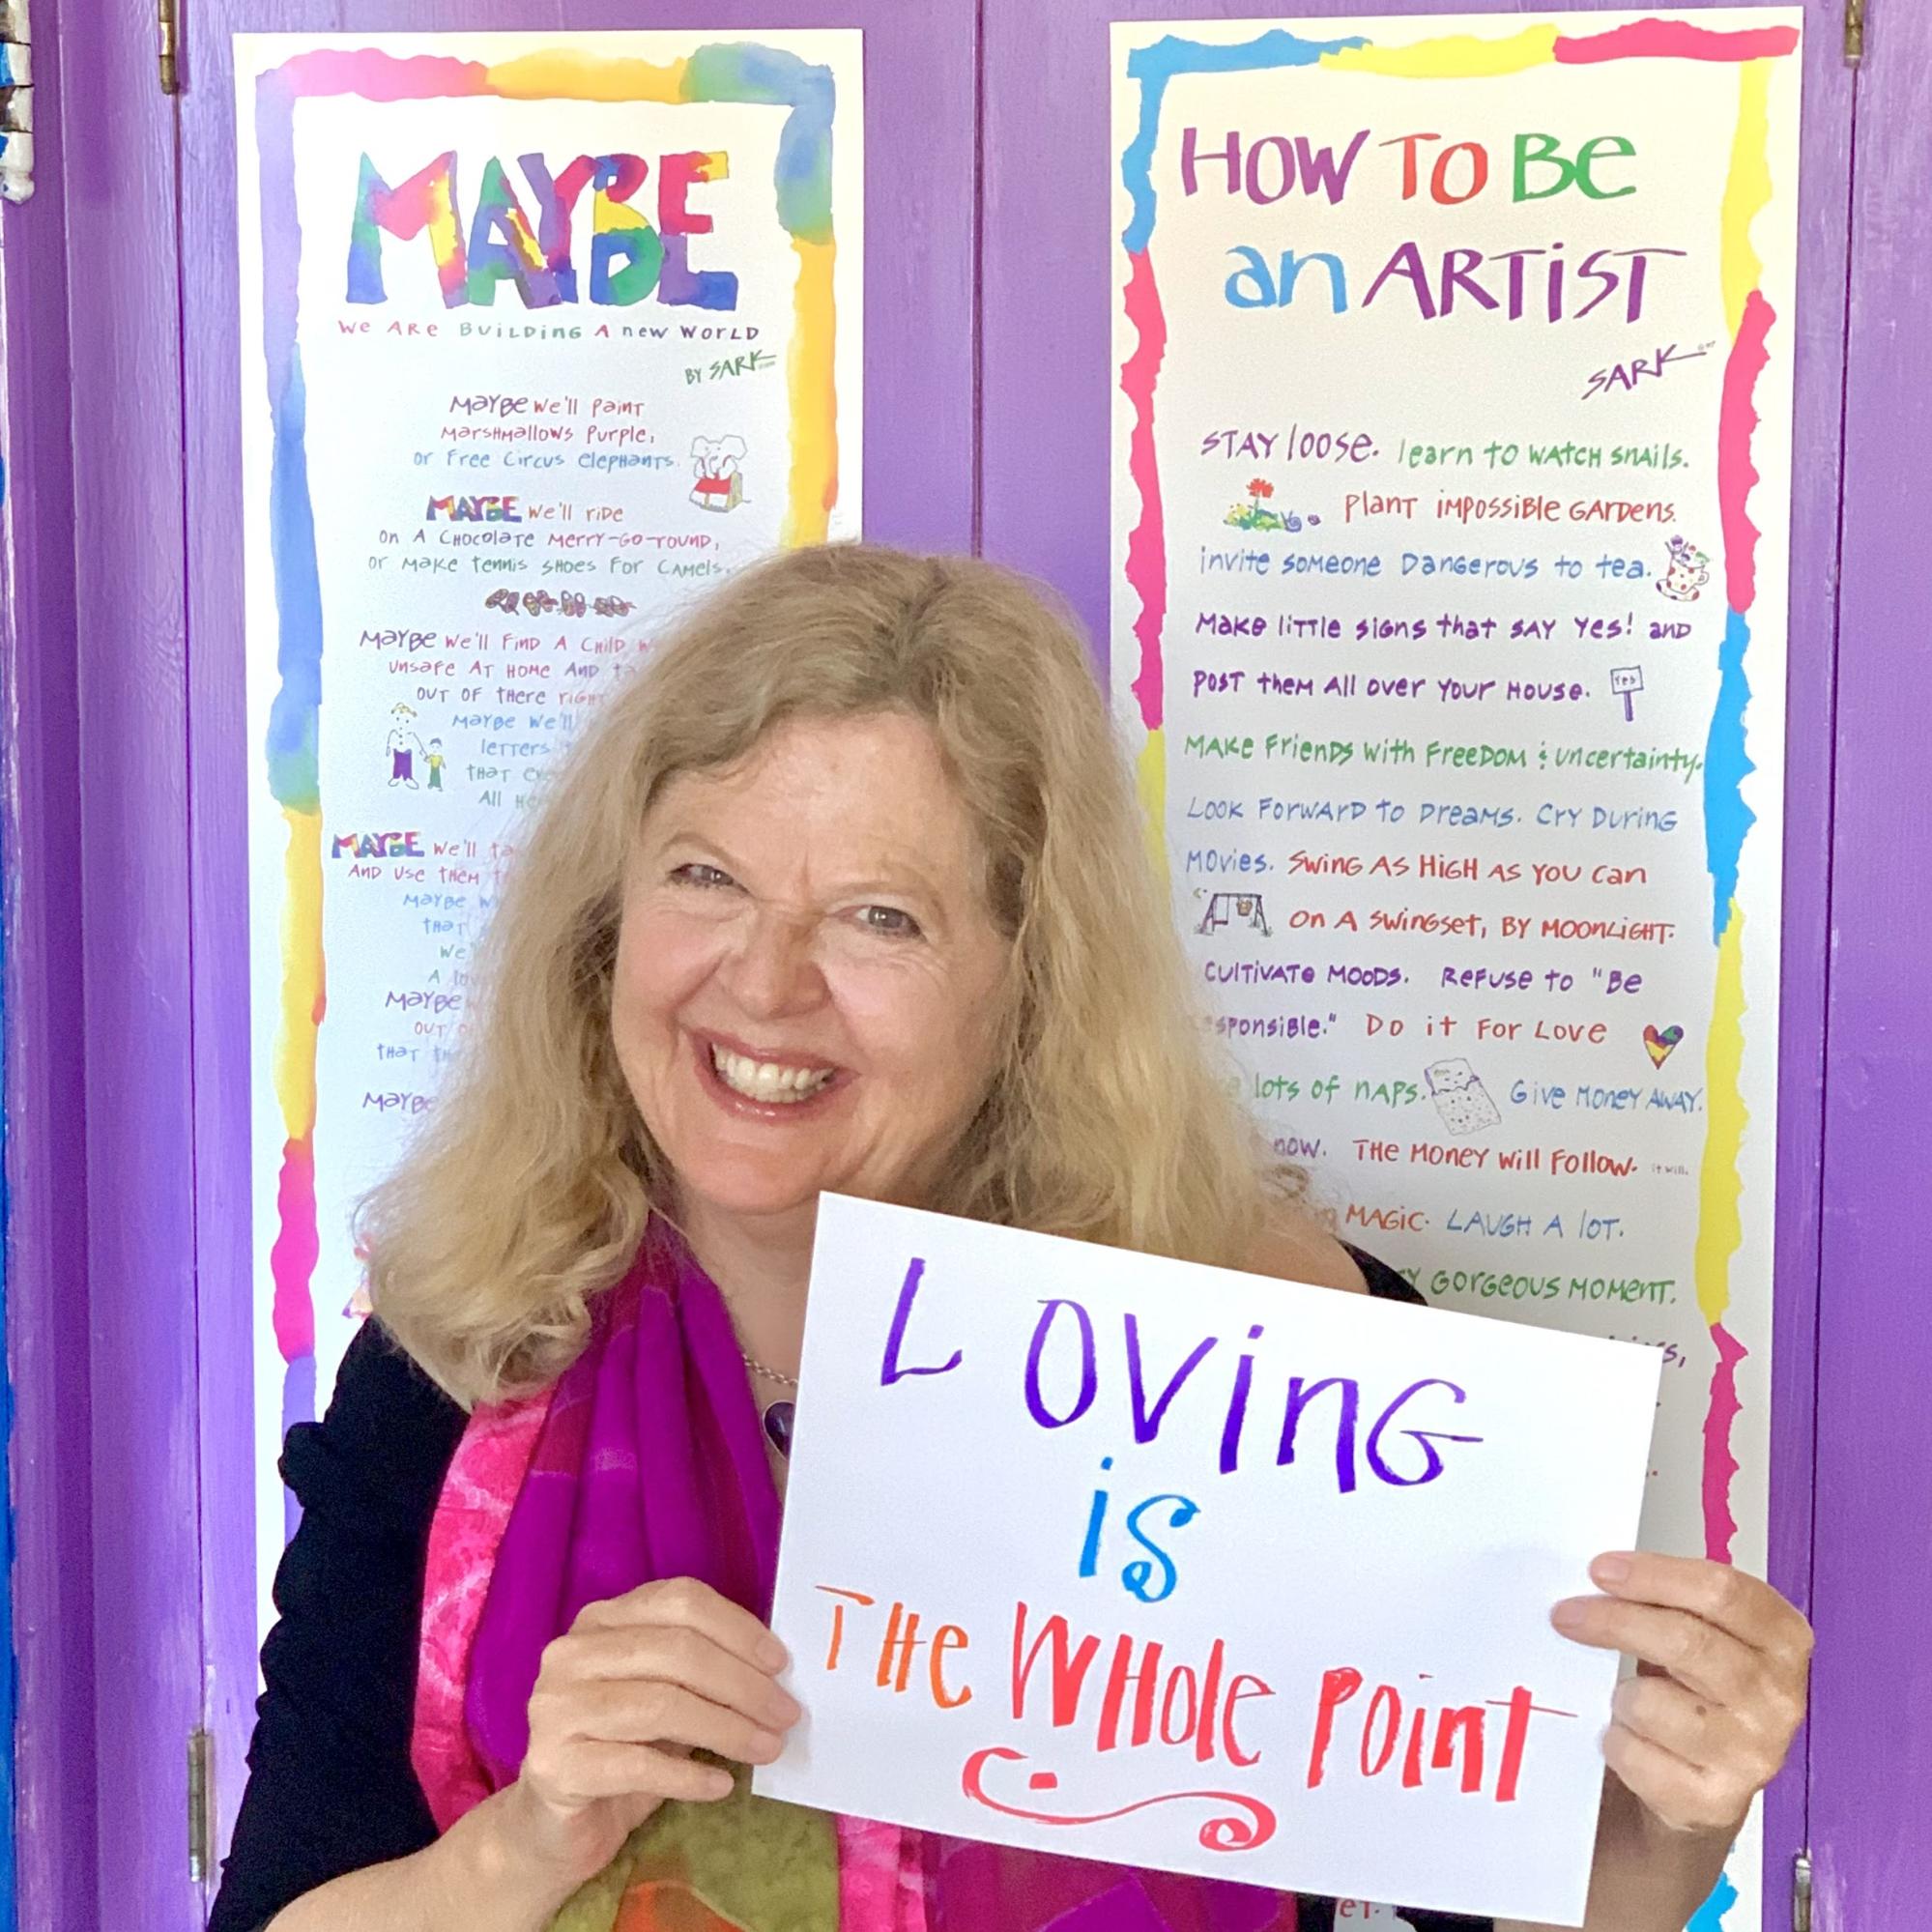 MAYBE
We ARE BUILDING A new WORLD
BY SARK
MAYBE We'll PaiNT
MARSHMallows PURPLE,
or Free Circus elepHants.
MAYBE We'll riDe
on A CHOCOLATE MERRY-GO-rounD,
or MAKE tennis SHOES For CAMELS.
MAYBE We'll FIND A CHILD
UNSAFE AT HOME AND
OUT OF tHere
MAYBE We'll
leTTERS
THAT
All
MAYBE We'll
AND USE tHEM
MAYBE
tHAT
We
A
MAYBE
OUT
tHAT
MAYBE
HOW TO Be
an ARTiST
SARK
STAY loose. learn to WATCH snails.
Plant impossible GARDENS.
invite SOMEONE DANGEROUS to tea.
MAKE little signs that SAY Yes! and
POST them All over Your House.
Yes
MAKE Friends With FreeDOM & uncertainty.
LOOK FORWARD to DREAMS. CRY DURING
MOVies. SWING AS HIGH AS YOU can
on A SWINGSET, BY MOONLiGHT.
CULTIVATE MOODS. REFUSE to "Be
sponsible." Do it For Love
lots of naps. Give Money AWAY.
now. THE MONEY Will Follow. it will.
MAGiC. LAUGH A lOT.
GORGEOUS MOMENT.
LOVinG
is
THe WHole POinT